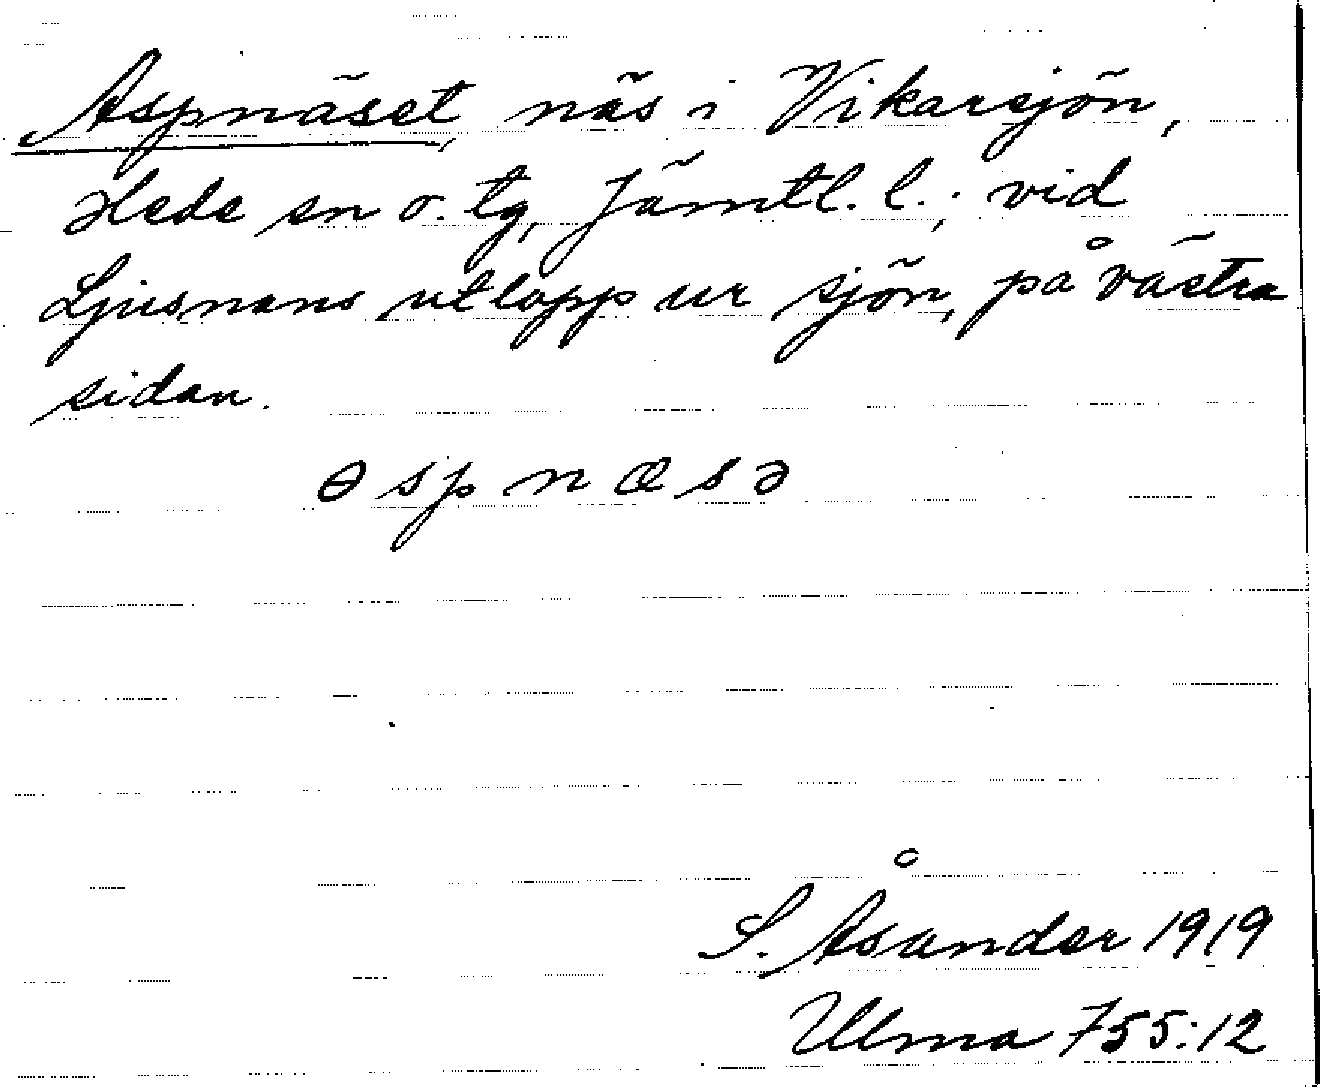 Aspnäset, näs i Vikarsjön,
Hede sn o. tg, Jämtl. l.; vid
Ljusnans utlopp ur sjön, på västra
sidan.
ɵspnæsə
S. Åsander 1919
Ulma 755:12